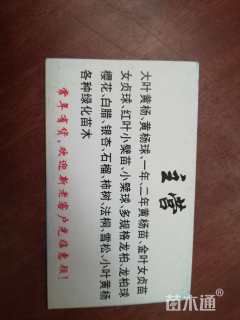 主营
大叶黄杨、黄杨球、一年、二年黄杨苗、金叶女贞苗
女贞球、红叶小檗苗、小檗球、多规格龙柏、龙柏球
樱花、白腊、银杏、石榴、柿树、法桐、雪松、小叶黄杨
各种绿化苗木
常年有货，欢迎新老客户光临惠顾！
苗木通